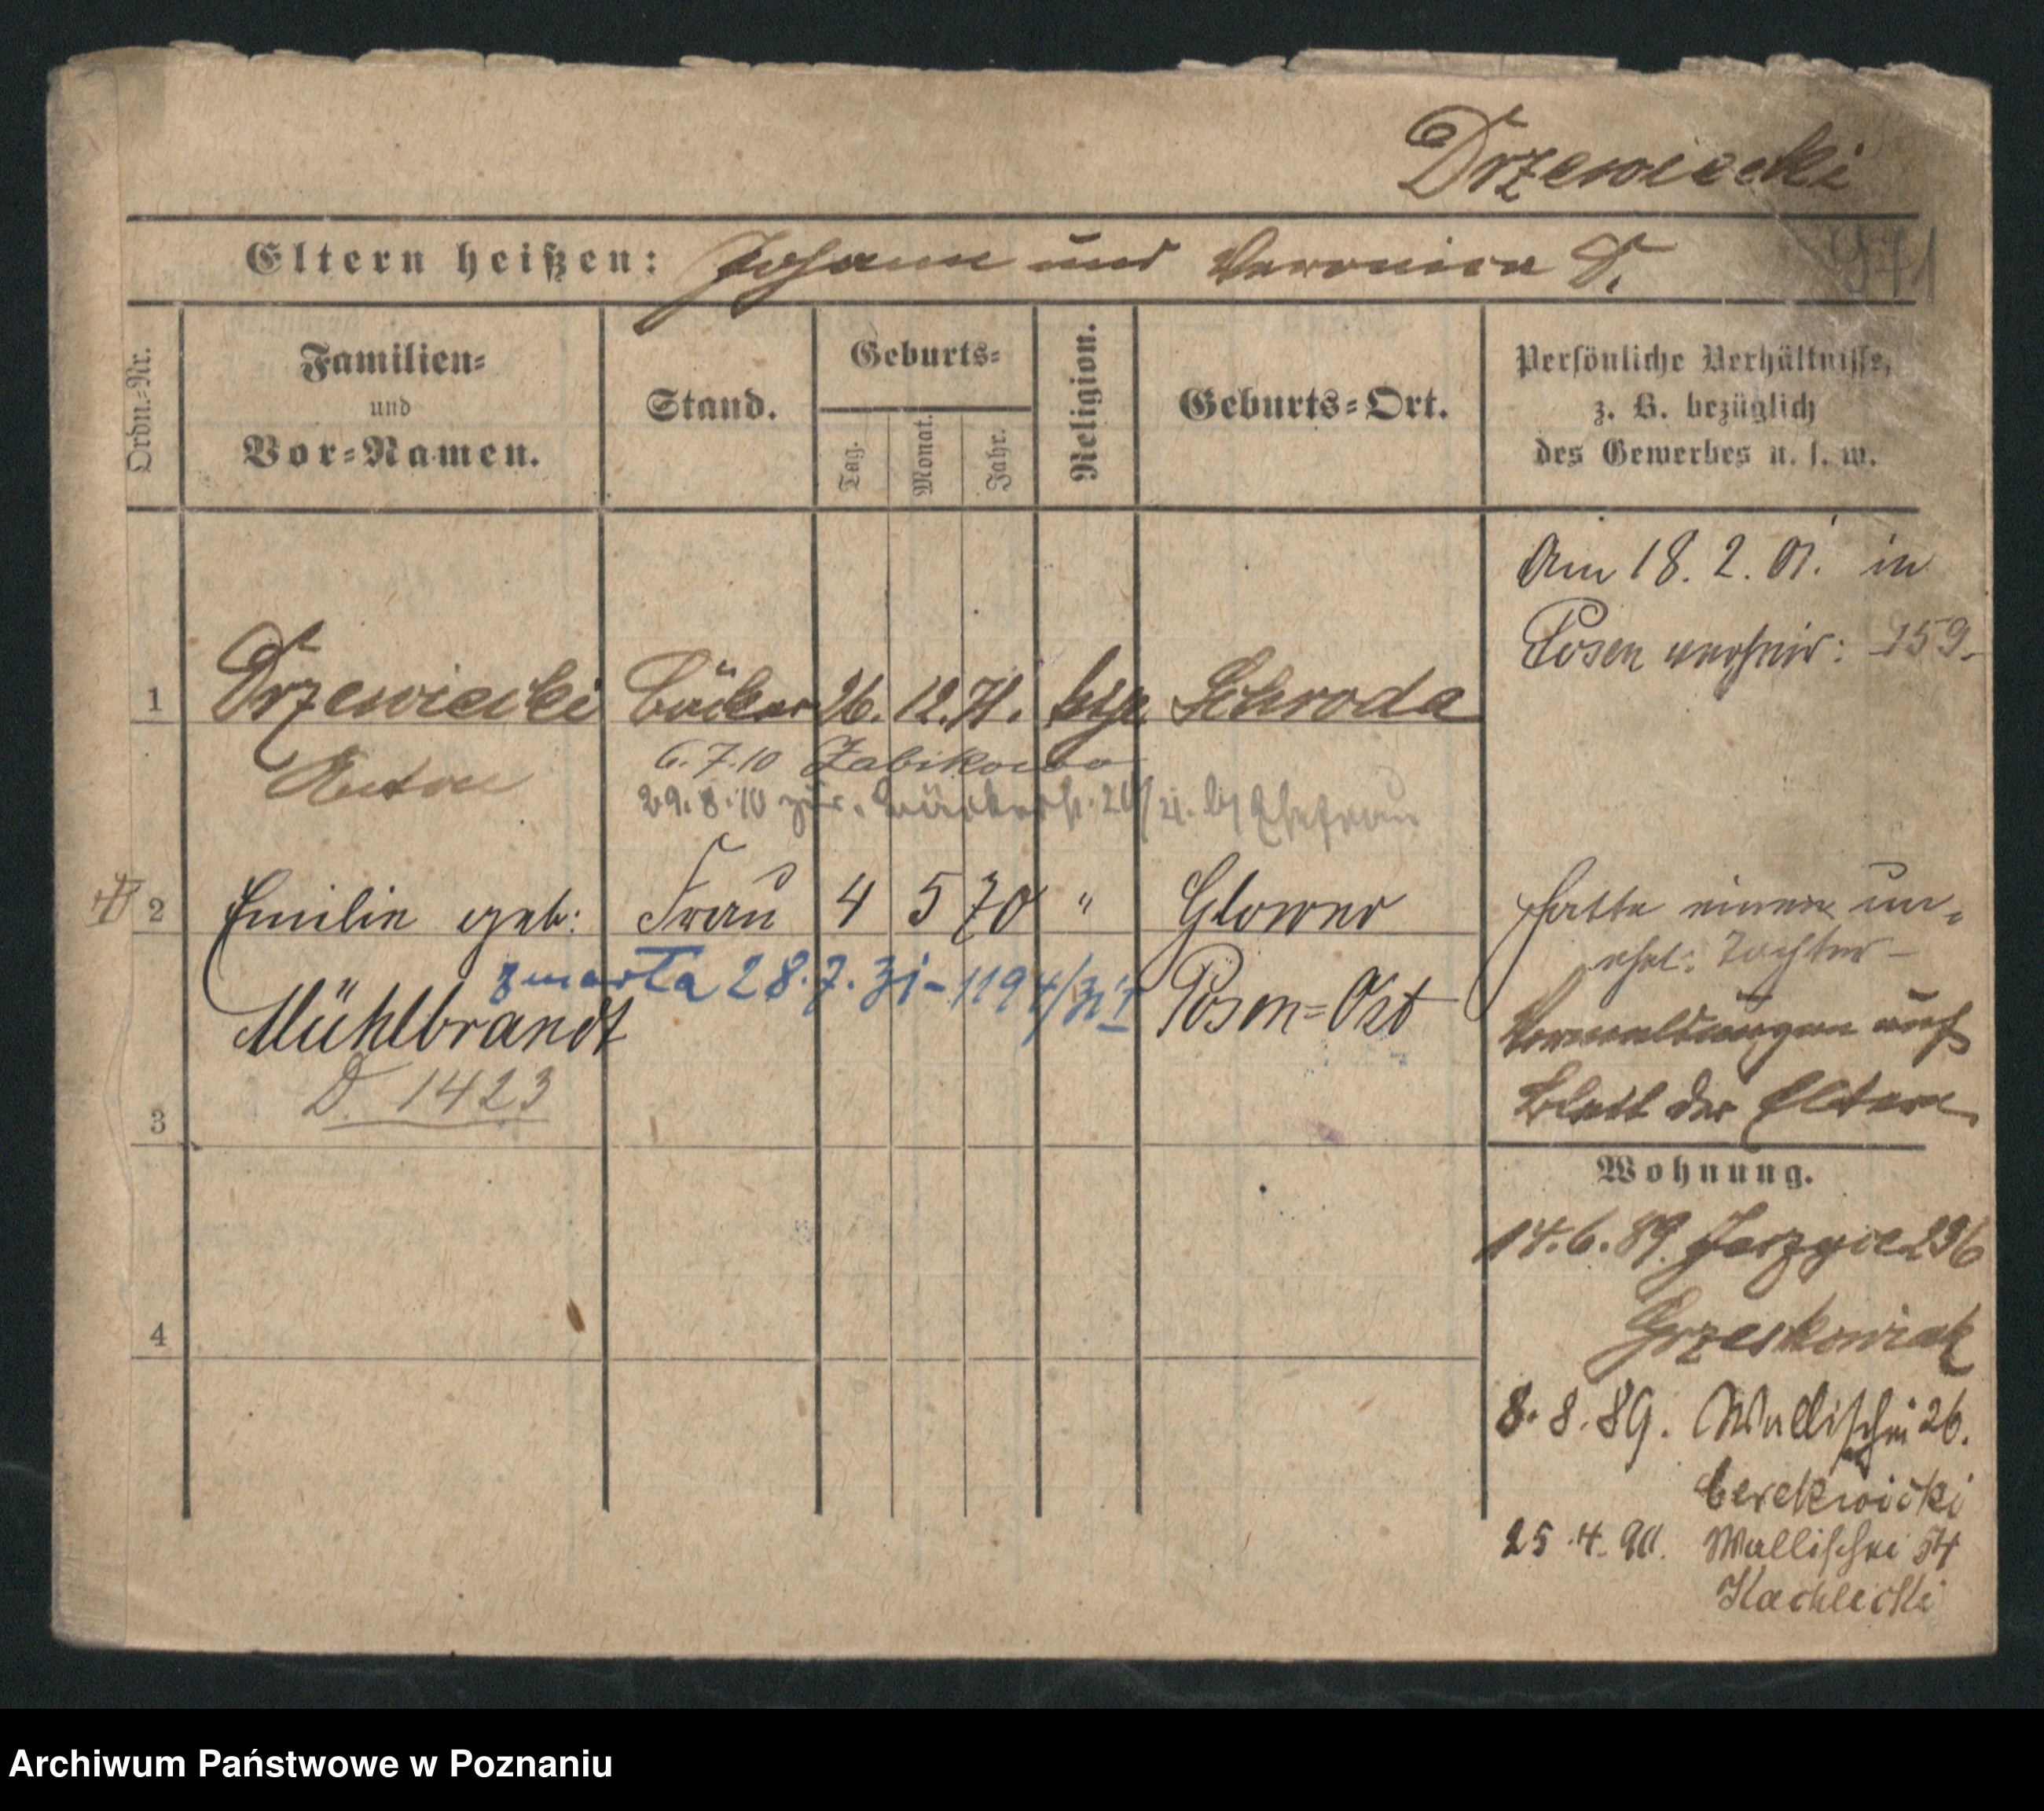 Drzewiecki
Eltern heißen: Johann und Veronica D.
971
Ordn.-Nr.
Familien-
und
Vor-Namen.
Stand.
Geburts-
Tag.
Monat.
Jahr.
Religion.
Geburts-Ort.
Persönliche Verhältnisse,
z. B. bezüglich
des Gewerbes u. s. w.
Am 18. 2. 01. in
Posen verheir: 159.
1 Drzewiecki Bäcker 26. 12. 71. Schroda
Anton
6.7.10 Zabikowo
29.8.10 zur. Bäckerstr. Ehefrau
2 Emilie geb: Frau 4 5 70 " Glowno
Mühlbrandt Posen=Ost
zmarła 28.7.31 - 1194/31
D. 1423
hatte einen un-
ehel: Tochter -
auf
Blatt der Eltern
3
4
Wohnung.
14.6.89. Jerzyce 236
Grzeskowiak
8. 8. 89. Wallischei 26.
Cerekwicki
25.4.90. Wallischei 54
Kachlicki
Archiwum Państwowe w Poznaniu